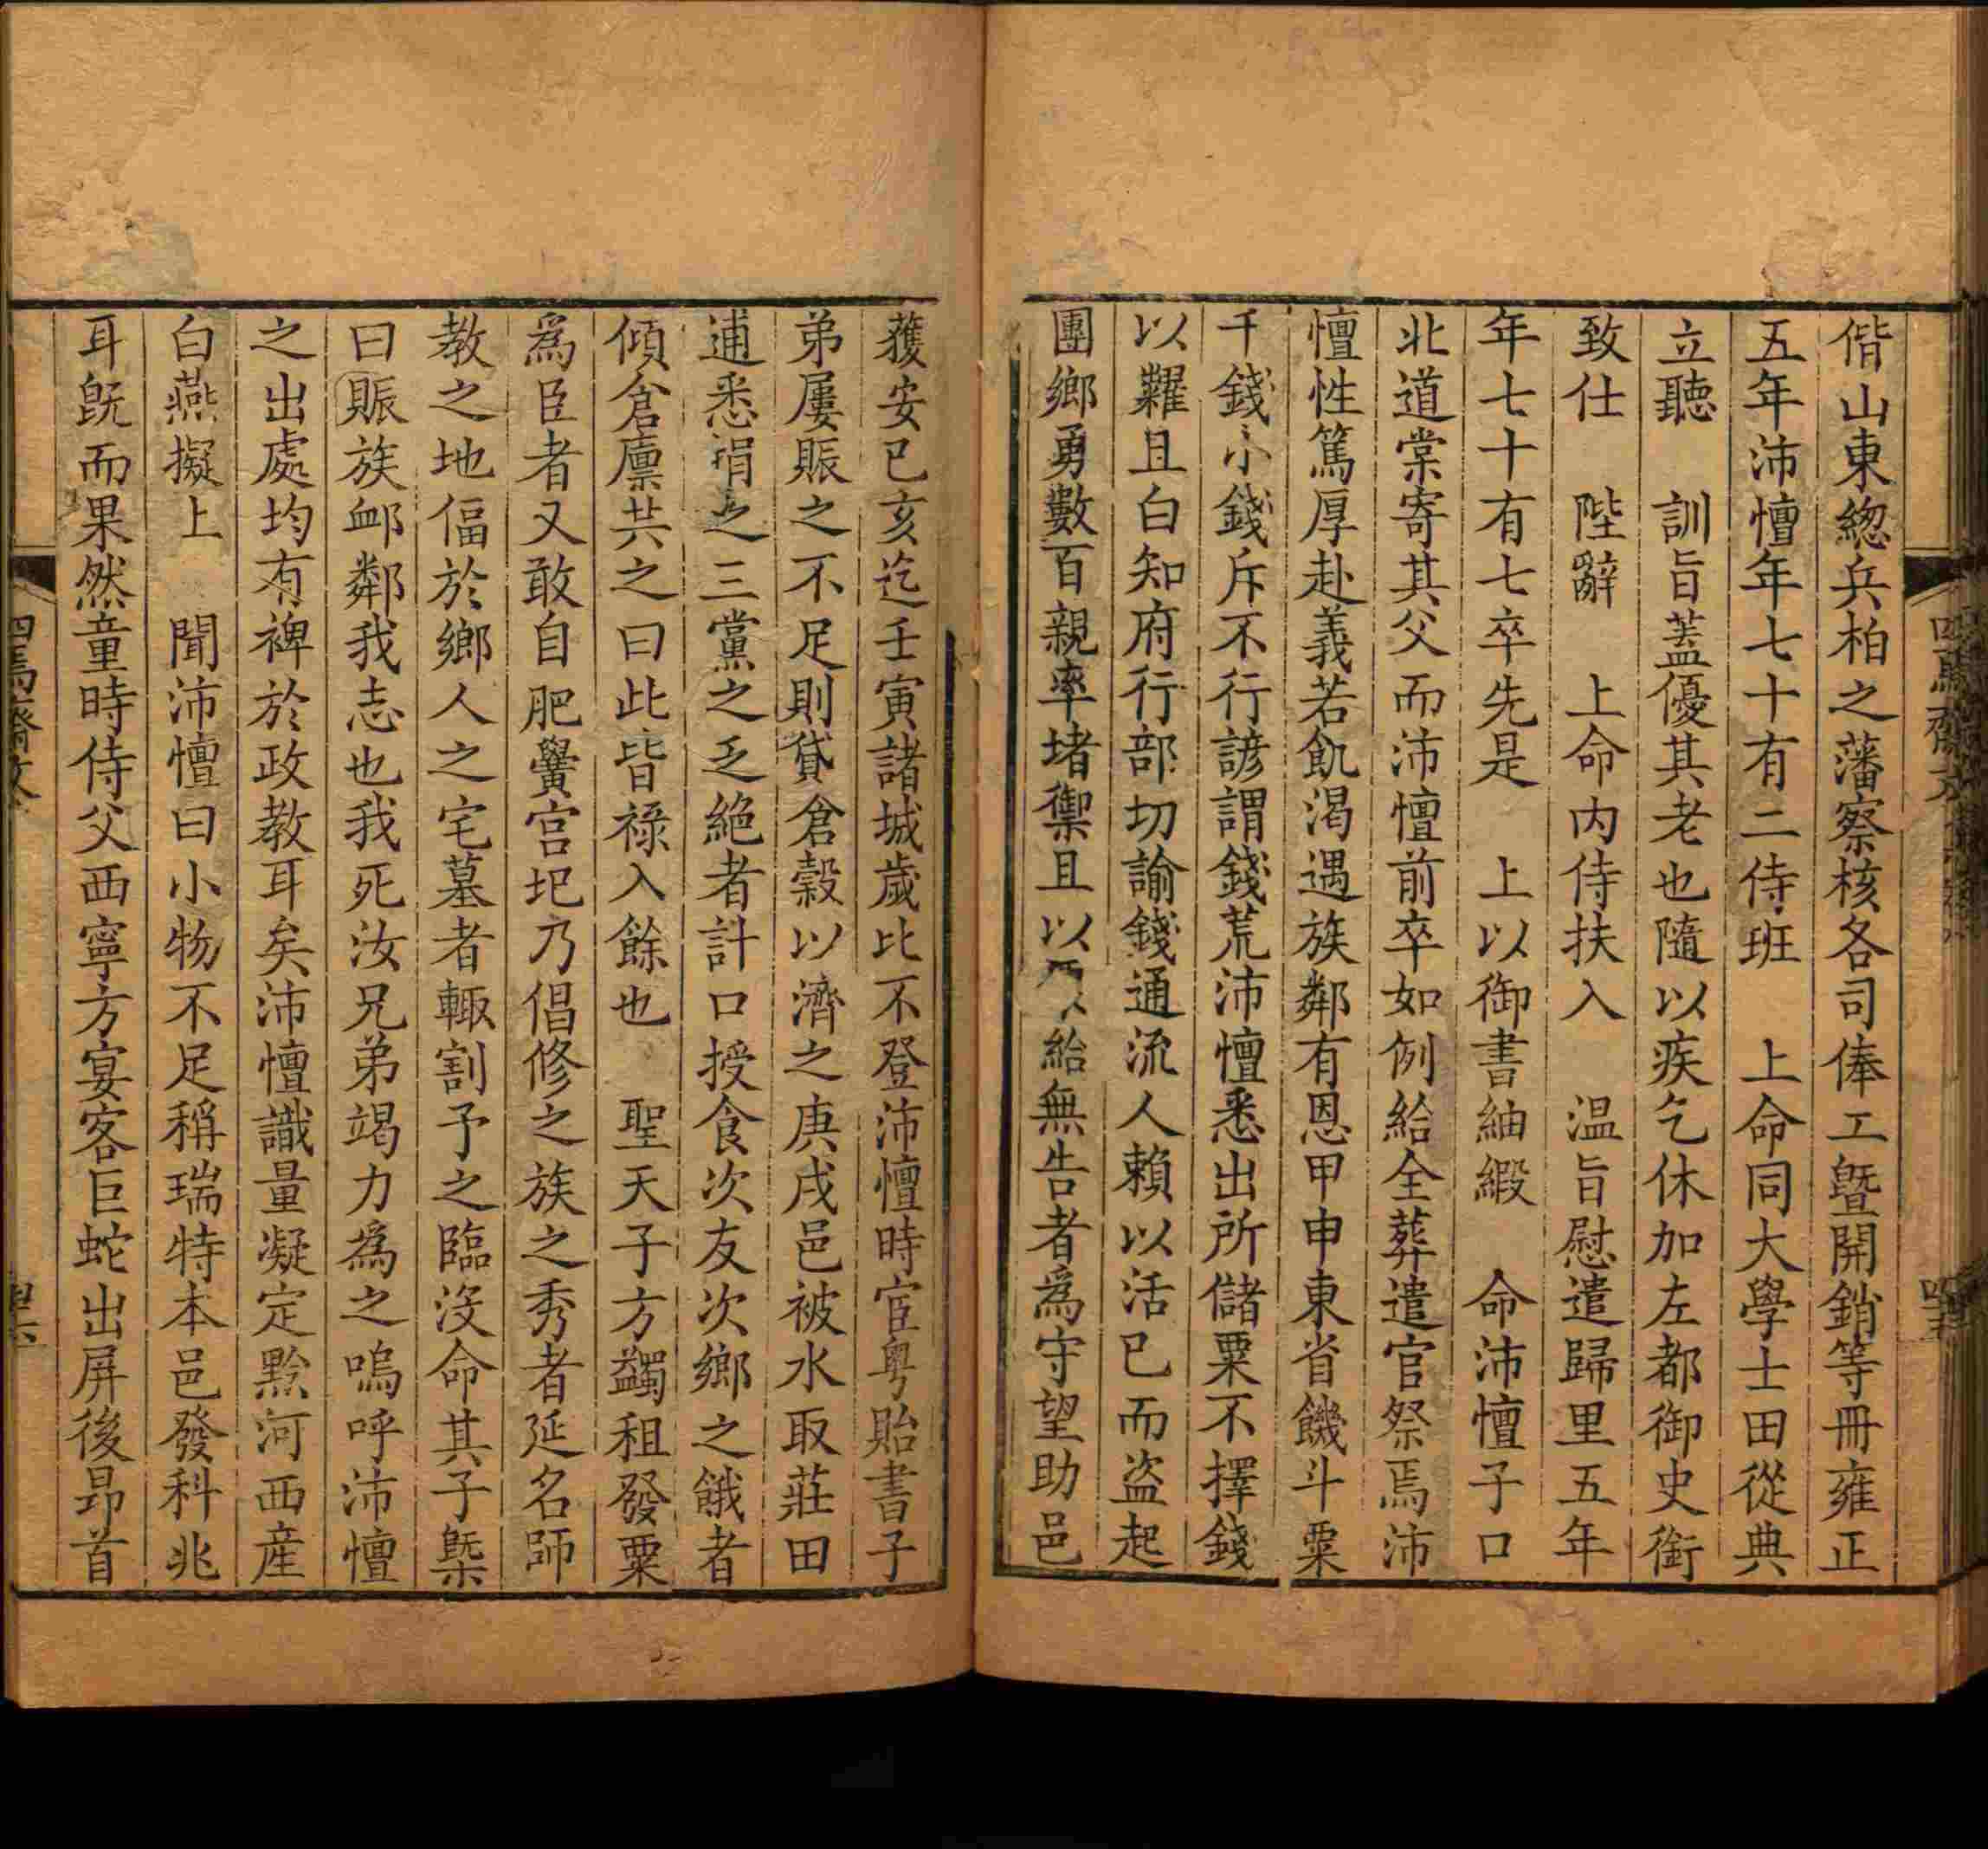 偕山東緫兵柏之藩察核各司俸工曁開銷等冊雍正
五年沛憻年七十有二侍班　上命同大學士田從典
立聽　訓旨蓋優其老也隨以疾乞休加左都御史銜
致仕　陛辭　上命内侍扶入　温旨慰遣歸里五年
年七十有七卒先是　上以御書紬緞　命沛憻子口
北道棠寄其父而沛憻前卒如例給全葬遣官祭焉沛
憻性篤厚赴義若飢渴遇族鄰有恩甲申東省饑斗粟
千錢小錢斥不行諺謂錢荒沛憻悉出所儲粟不擇錢
以糶且白知府行部切諭錢通流人賴以活已而盜起
團鄉勇數百親率堵禦且以給無告者爲守望助邑
獲安已亥迄壬寅諸城歲比不登沛憻時宦粵貽書子
弟屢賑之不足則貸倉穀以濟之庚戌邑被水取莊田
逋悉捐之三黨之乏絶者計口授食次友次鄉之餓者
傾倉廩共之曰此皆祿入餘也　聖天子方蠲租發粟
爲臣者又敢自肥黌宮圮乃倡修之族之秀者延名師
教之地偪於鄉人之宅墓者輙割予之臨沒命其子槩
曰賑族衈鄰我志也我死汝兄弟竭力爲之嗚呼沛憻
之出處均有裨於政教耳矣沛憻識量凝定黔河西産
白燕擬上　聞沛憻曰小物不足稱瑞特本邑發科兆
耳旣而果然童時侍父西寧方宴客巨蛇出屏後昂首